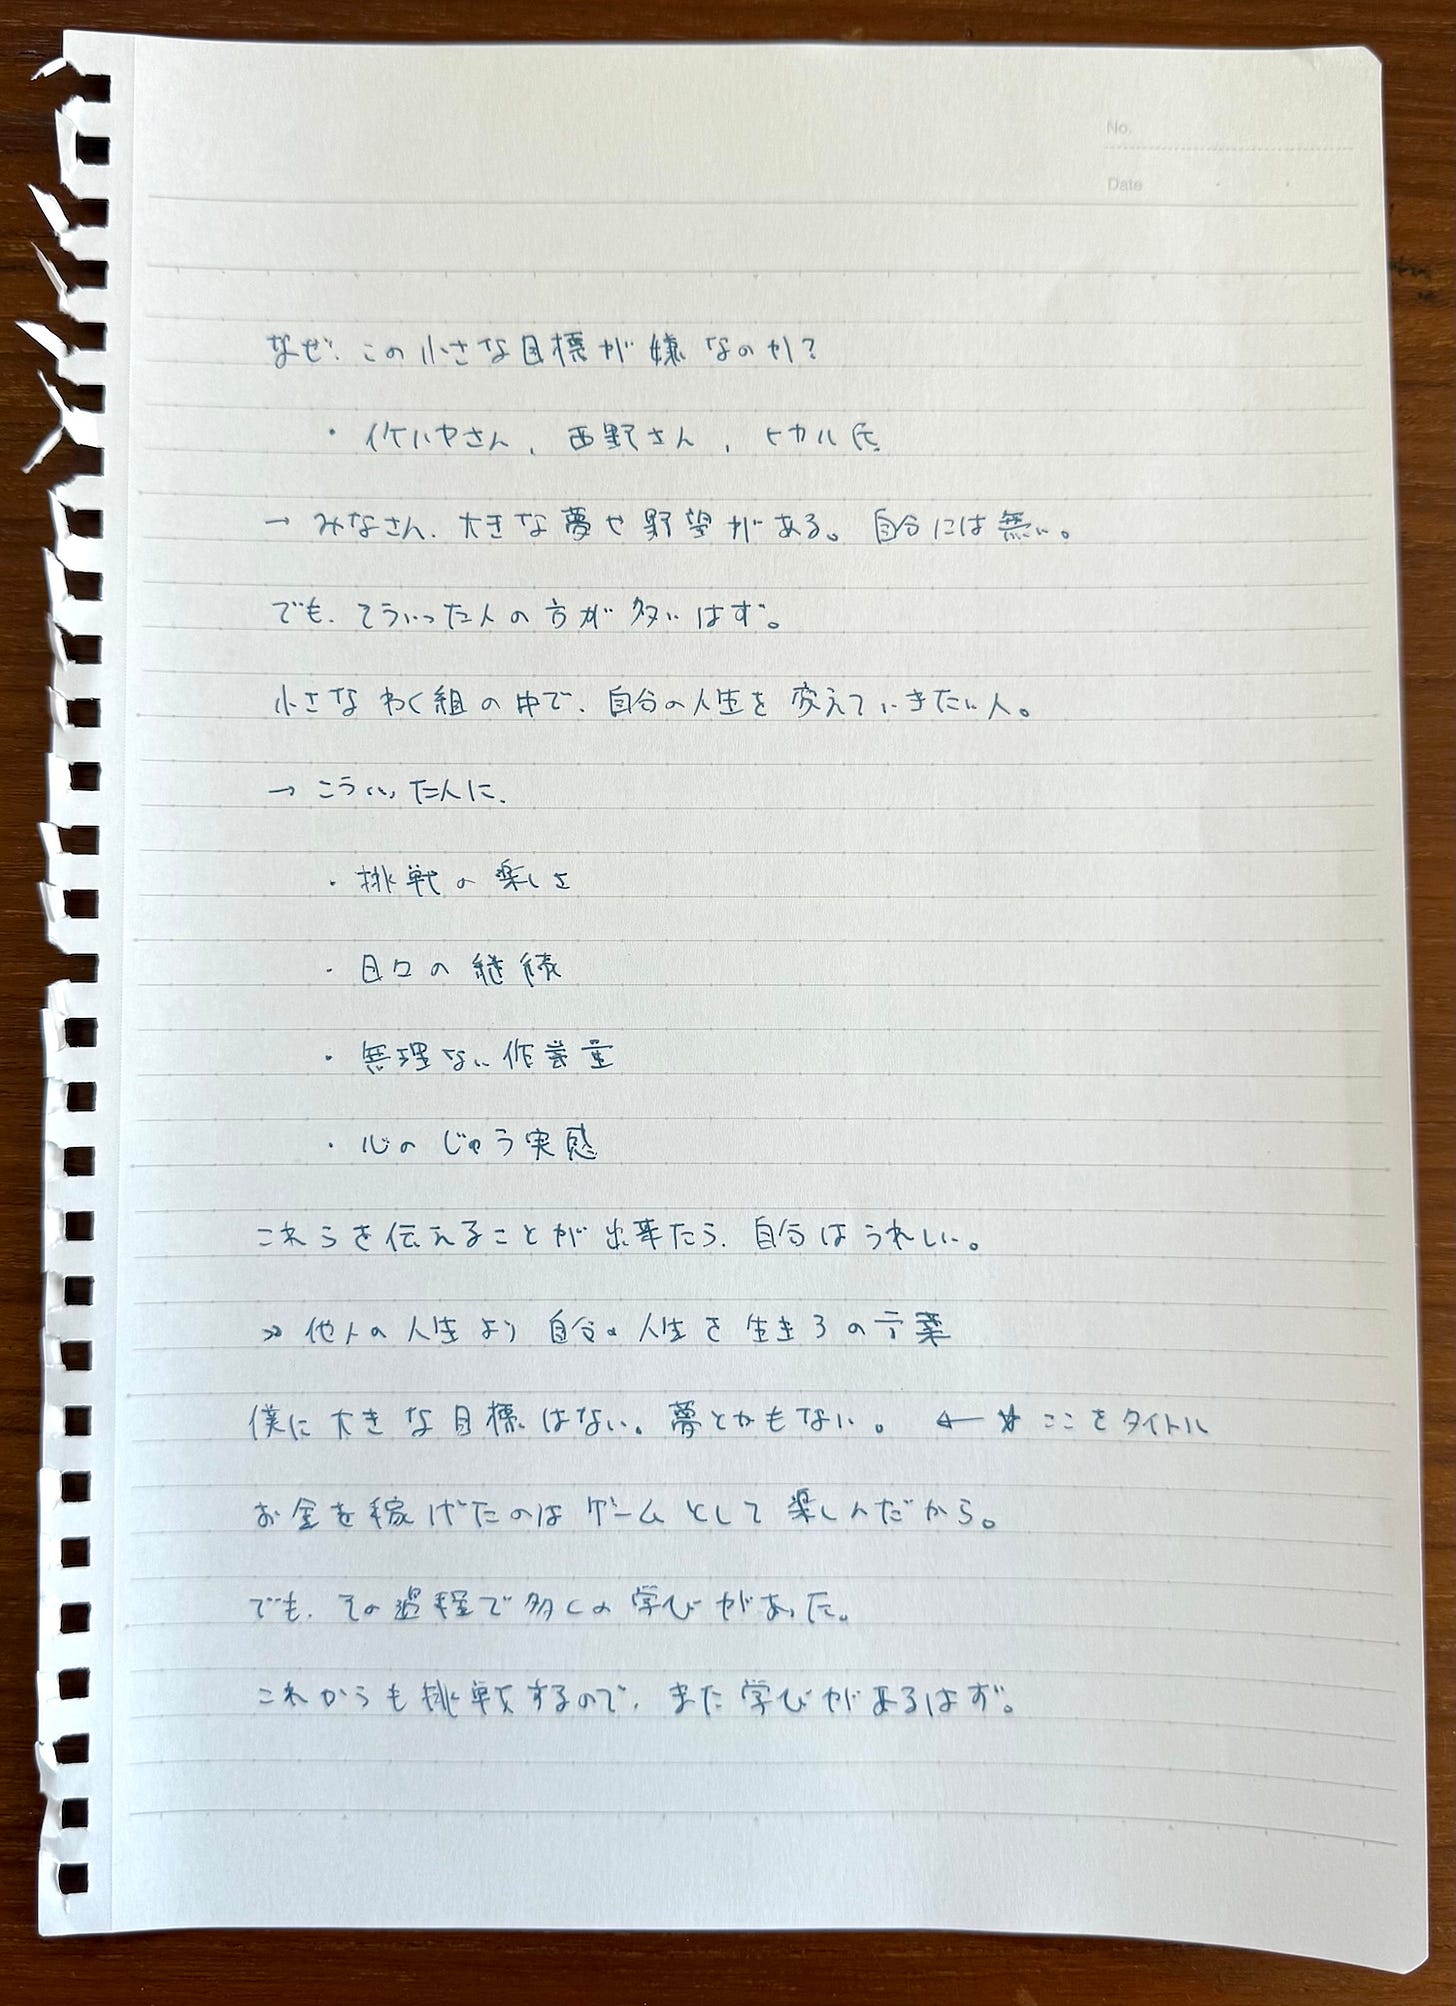 No.
Date
なぜ、この小さな目標が嫌なのか?
・イケハヤさん、西野さん、ヒカル氏
→ みなさん、大きな夢や野望がある。自分には無い。
でも、そういった人の方が多いはず。
小さなわく組の中で、自分の人生を変えていきたい人。
→ こういった人に、
・挑戦の楽しさ
・日々の継続
・無理ない作業量
・心のじゅう実感
これらを伝えることが出来たら、自分はうれしい。
≫ 他人の人生より自分の人生を生きろの言葉
僕に大きな目標はない。夢とかもない。 ← ☆ ここをタイトル
お金を稼げたのはゲームとして楽しんだから。
でも、その過程で多くの学びがあった。
これからも挑戦するので、また学びがあるはず。